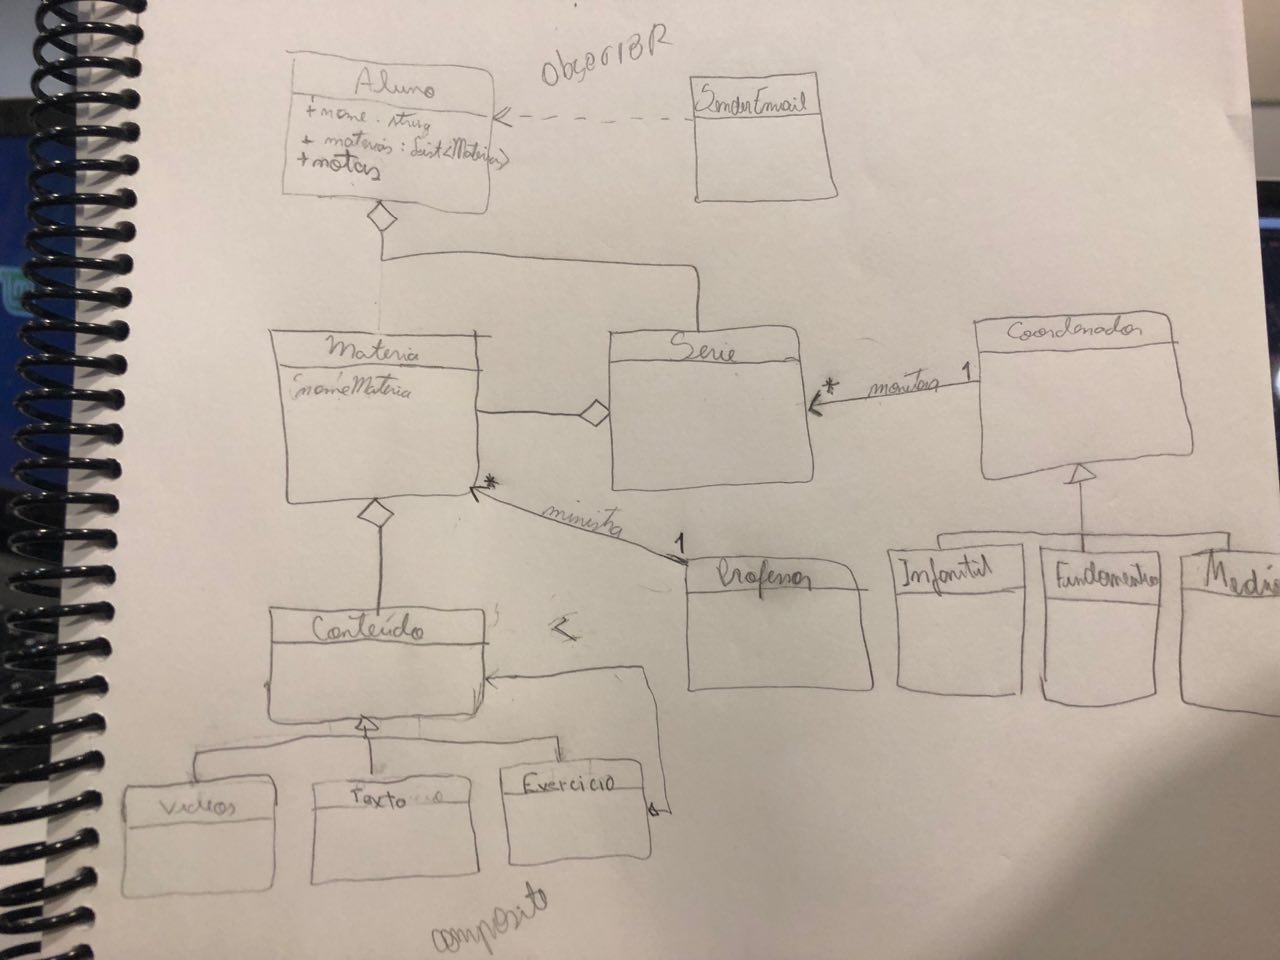 Observer
Aluno
+ nome : string
+ materias : List<Materia>
+ notas
SenderEmail
Materia
nomeMateria
Serie
Coordenador
* monitora 1
* ministra 1
Professor
Infantil
Fundamental
Medio
Conteúdo
<
Videos
Texto
Exercicio
composite